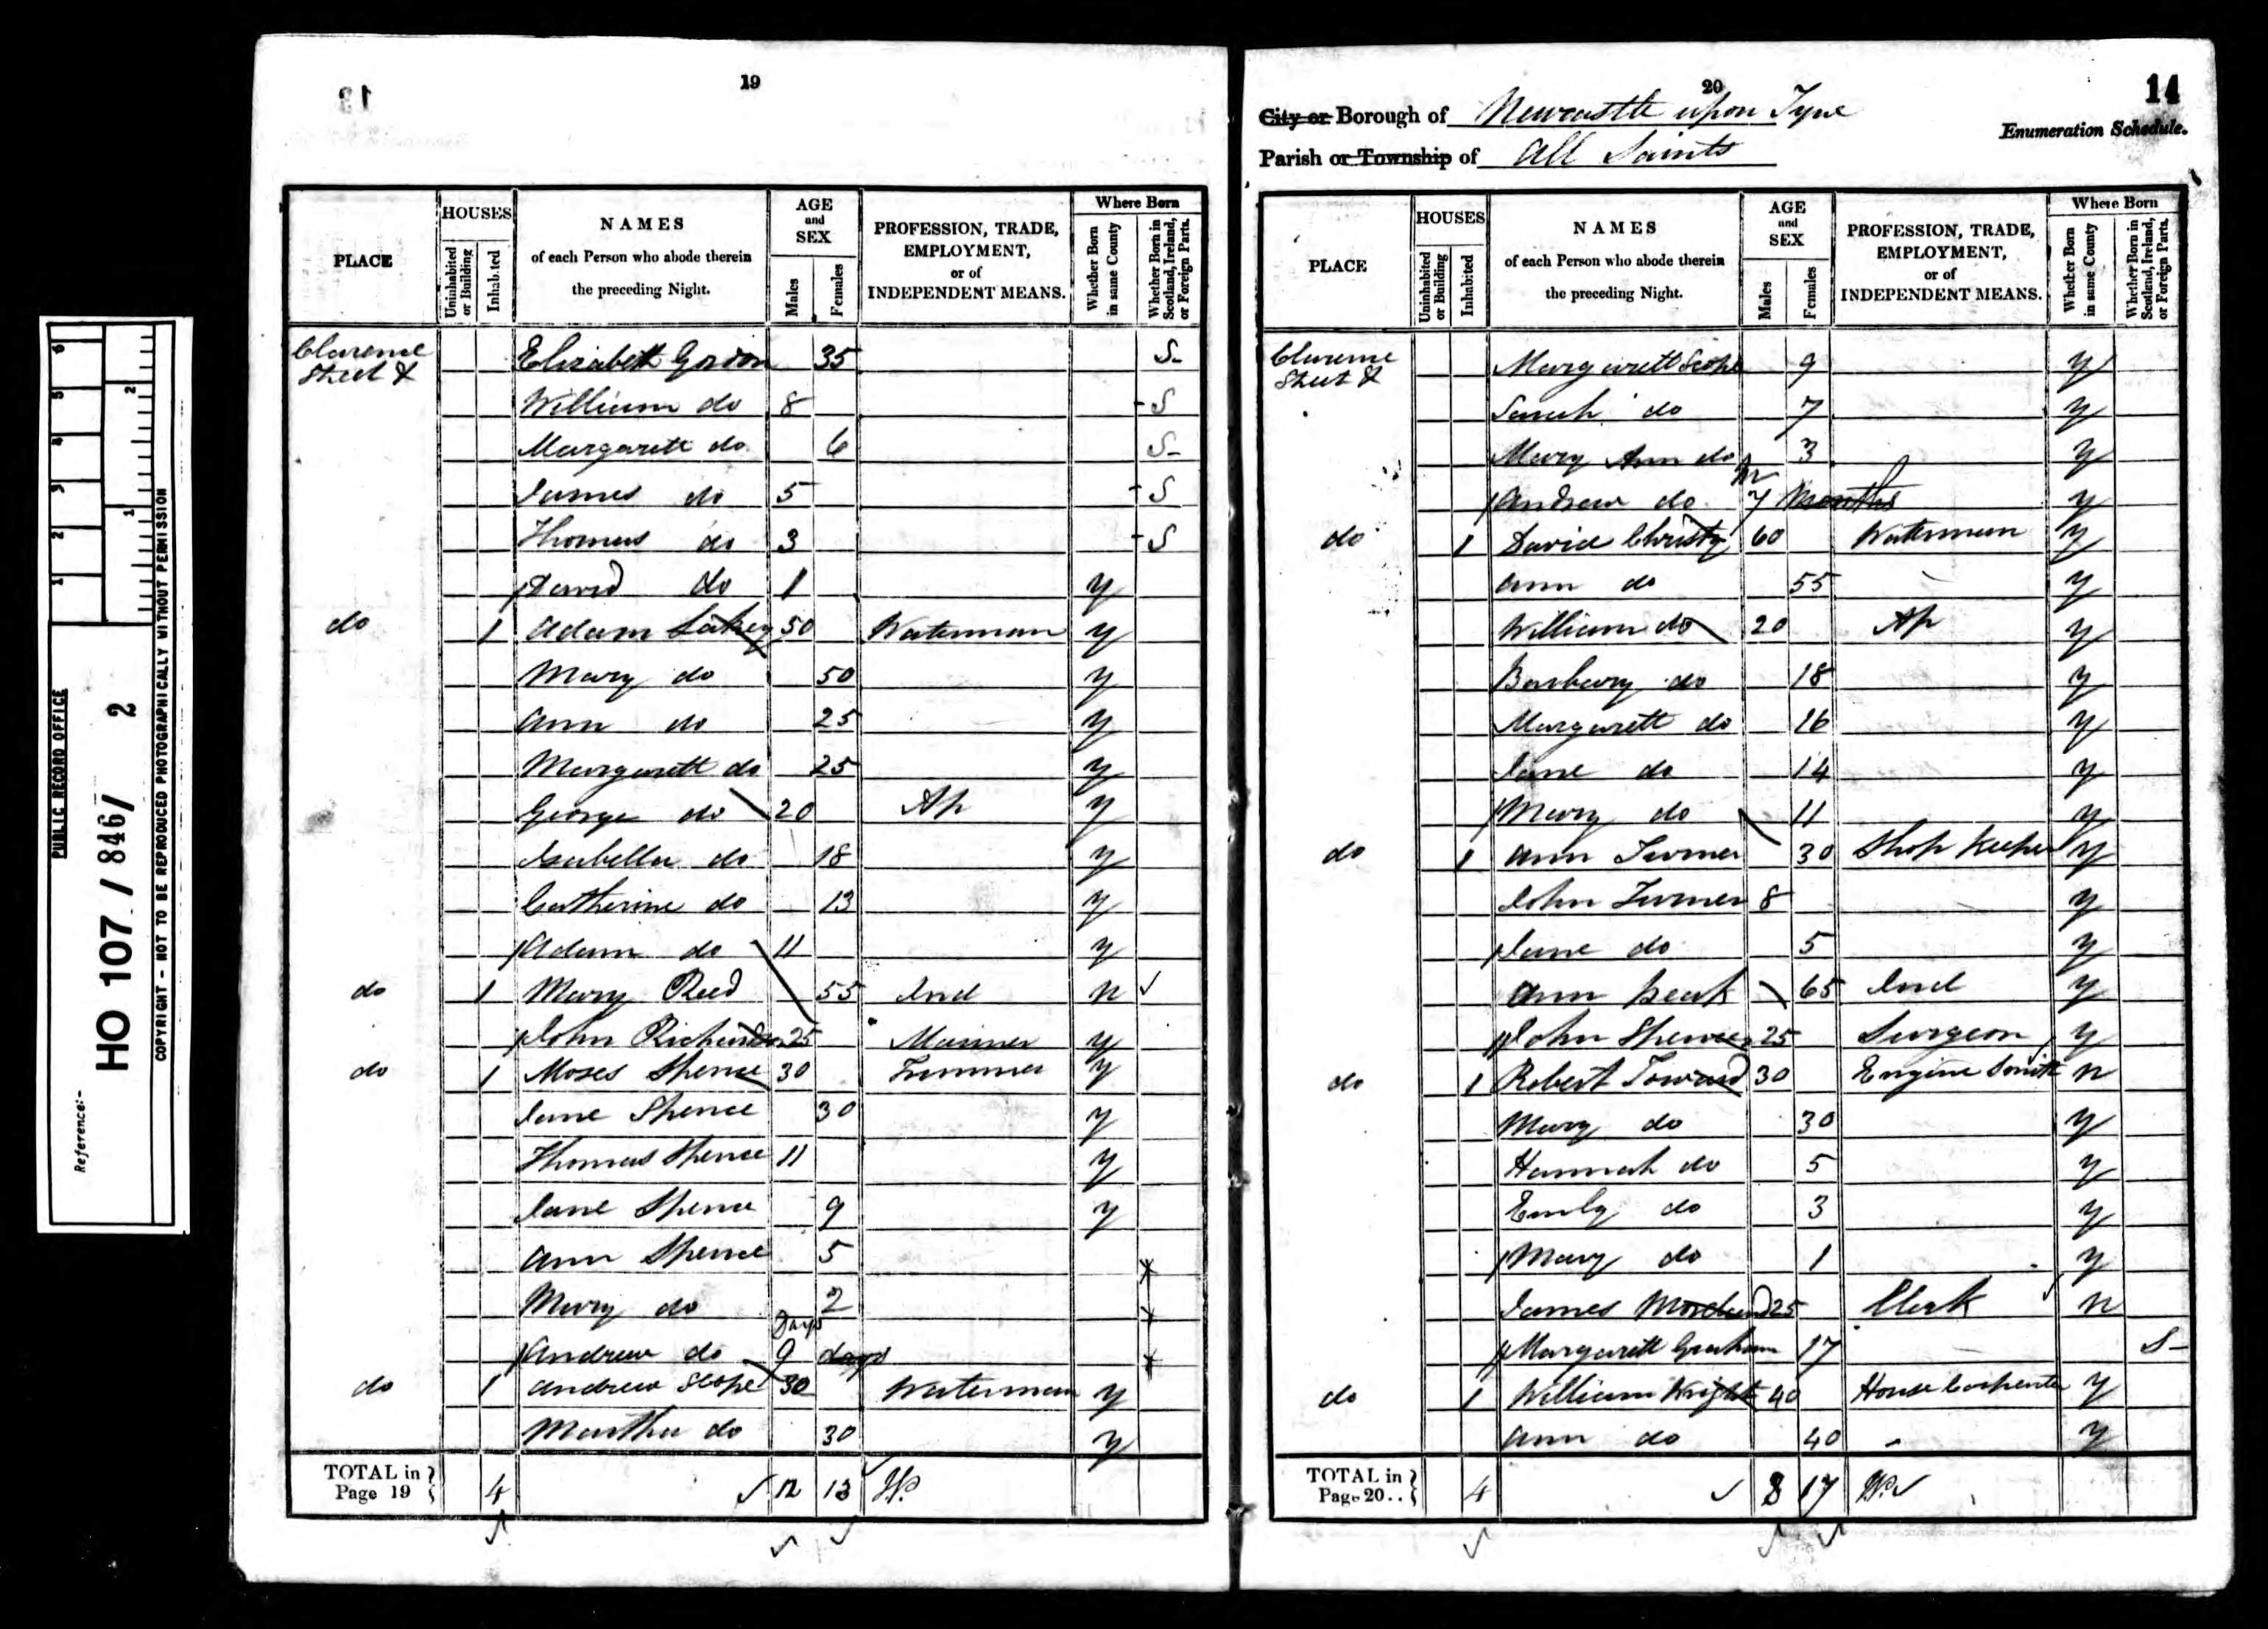 PUBLIC RECORD OFFICE
Reference:-
HO 107 / 846/ 2
COPYRIGHT - NOT TO BE REPRODUCED PHOTOGRAPHICALLY WITHOUT PERMISSION
1 2 3 4 5 6
1 2
13
19
PLACE
HOUSES
Uninhabited or Building
Inhabited
NAMES of each Person who abode therein the preceding Night.
AGE and SEX
Males
Females
PROFESSION, TRADE, EMPLOYMENT, or of INDEPENDENT MEANS.
Where Born
Whether Born in same County
Whether Born in Scotland, Ireland, or Foreign Parts.
Clarence Street Elizabeth Gordon 35 S
William do 8 S
Margarett do 6 S
James do 5 S
Thomas do 3 S
David do 1 y
do 1 Adam 50 Waterman y
Mary do 50 y
Ann do 25 y
Margarett do 25 y
George do 20 Ap y
Isabella do 18 y
Catherine do 13 y
Adam do 11 y
do 1 Mary Reed 55 Ind n
John Richardson 25 Mariner y
do 1 Moses Spence 30 Trimmer y
Jane Spence 30 y
Thomas Spence 11 y
Jane Spence 9 y
Ann Spence 5
Mary do 2
Days
Andrew do 9 days
do 1 Andrew Scope 30 Waterman y
Martha do 30 y
TOTAL in Page 19 4 12 13
20
14
City or Borough of Newcastle upon Tyne
Enumeration Schedule.
Parish or Township of All Saints
PLACE
HOUSES
Uninhabited or Building
Inhabited
NAMES of each Person who abode therein the preceding Night.
AGE and SEX
Males
Females
PROFESSION, TRADE, EMPLOYMENT, or of INDEPENDENT MEANS.
Where Born
Whether Born in same County
Whether Born in Scotland, Ireland, or Foreign Parts.
Clarence Street Margarett Scope 9 y
Sarah do 7 y
Mary Ann do 3 y
Andrew do 7 Months y
do 1 David Christy 60 Waterman y
Ann do 55 y
William do 20 Ap y
Barbary do 18 y
Margarett do 16 y
Jane do 14 y
Mary do 11 y
do 1 Ann Turner 30 Shop Keeper y
John Turner 8 y
Jane do 5 y
Ann 65 Ind y
John 25 Surgeon y
do 1 Robert Toward 30 Engine Smith n
Mary do 30 y
Hannah do 5 y
Emly do 3 y
Mary do 1 y
James 25 Clerk n
Margarett Graham 17 S
do 1 William Wright 40 House Carpenter y
Ann do 40 y
TOTAL in Page 20.. 4 8 17